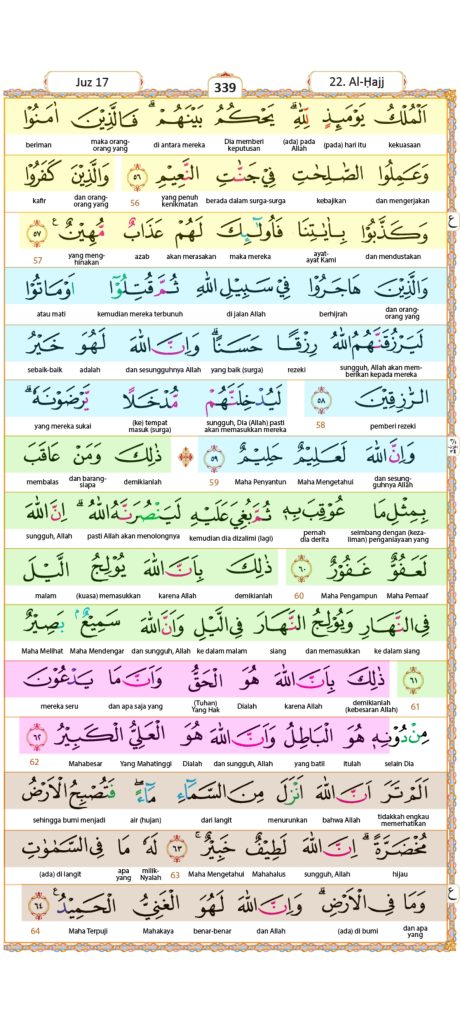 Juz 17
339
22. Al-Ḥajj
اَلْمُلْكُ يَوْمَىِٕذٍ لِّلّٰهِ ۗ يَحْكُمُ بَيْنَهُمْ ۗ فَالَّذِيْنَ اٰمَنُوْا
kekuasaan (pada) hari itu (ada) pada Allah Dia memberi keputusan di antara mereka maka orang-orang yang beriman
وَعَمِلُوا الصّٰلِحٰتِ فِيْ جَنّٰتِ النَّعِيْمِ ٥٦ وَالَّذِيْنَ كَفَرُوْا
dan mengerjakan kebajikan berada dalam surga-surga yang penuh kenikmatan 56 dan orang-orang yang kafir
وَكَذَّبُوْا بِاٰيٰتِنَا فَاُولٰۤىِٕكَ لَهُمْ عَذَابٌ مُّهِيْنٌ ࣖ ٥٧
dan mendustakan ayat-ayat Kami maka mereka akan merasakan azab yang meng-hinakan 57
ع
وَالَّذِيْنَ هَاجَرُوْا فِيْ سَبِيْلِ اللّٰهِ ثُمَّ قُتِلُوْٓا اَوْ مَاتُوْا
dan orang-orang yang berhijrah di jalan Allah kemudian mereka terbunuh atau mati
لَيَرْزُقَنَّهُمُ اللّٰهُ رِزْقًا حَسَنًا ۗ وَاِنَّ اللّٰهَ لَهُوَ خَيْرُ
sungguh, Allah akan mem-berikan kepada mereka rezeki yang baik (surga) dan sesungguhnya Allah adalah sebaik-baik
الرّٰزِقِيْنَ ٥٨ لَيُدْخِلَنَّهُمْ مُّدْخَلًا يَّرْضَوْنَهٗ ۗ
pemberi rezeki 58 sungguh, Dia (Allah) pasti akan memasukkan mereka (ke) tempat masuk (surga) yang mereka sukai
وَاِنَّ اللّٰهَ لَعَلِيْمٌ حَلِيْمٌ ٥٩ ۞ ذٰلِكَ وَمَنْ عَاقَبَ
dan sesung-guhnya Allah Maha Mengetahui Maha Penyantun 59 demikianlah dan barang-siapa membalas
بِمِثْلِ مَا عُوْقِبَ بِهٖ ثُمَّ بُغِيَ عَلَيْهِ لَيَنْصُرَنَّهُ اللّٰهُ ۗ اِنَّ اللّٰهَ
seimbang dengan (keza-liman) penganiayaan yang pernah dia derita kemudian dia dizalimi (lagi) pasti Allah akan menolongnya sungguh, Allah
لَعَفُوٌّ غَفُوْرٌ ٦٠ ذٰلِكَ بِاَنَّ اللّٰهَ يُوْلِجُ الَّيْلَ
Maha Pemaaf Maha Pengampun 60 demikianlah karena Allah (kuasa) memasukkan malam
فِى النَّهَارِ وَيُوْلِجُ النَّهَارَ فِى الَّيْلِ وَاَنَّ اللّٰهَ سَمِيْعٌۢ بَصِيْرٌ
ke dalam siang dan memasukkan siang ke dalam malam dan sungguh, Allah Maha Mendengar Maha Melihat
٦١ ذٰلِكَ بِاَنَّ اللّٰهَ هُوَ الْحَقُّ وَاَنَّ مَا يَدْعُوْنَ
61 demikianlah (kebesaran Allah) karena Allah Dialah (Tuhan) Yang Hak dan apa saja yang mereka seru
مِنْ دُوْنِهٖ هُوَ الْبَاطِلُ وَاَنَّ اللّٰهَ هُوَ الْعَلِيُّ الْكَبِيْرُ ٦٢
selain Dia itulah yang batil dan sungguh, Allah Dialah Yang Mahatinggi Mahabesar 62
اَلَمْ تَرَ اَنَّ اللّٰهَ اَنْزَلَ مِنَ السَّمَاۤءِ مَاۤءً ۖ فَتُصْبِحُ الْاَرْضُ
tidakkah engkau memerhatikan bahwa Allah menurunkan dari langit air (hujan) sehingga bumi menjadi
مُخْضَرَّةً ۗ اِنَّ اللّٰهَ لَطِيْفٌ خَبِيْرٌ ۚ ٦٣ لَهٗ مَا فِى السَّمٰوٰتِ
hijau sungguh, Allah Mahahalus Maha Mengetahui 63 milik-Nyalah apa yang (ada) di langit
وَمَا فِى الْاَرْضِ ۗ وَاِنَّ اللّٰهَ لَهُوَ الْغَنِيُّ الْحَمِيْدُ ࣖ ٦٤
dan apa yang (ada) di bumi dan Allah benar-benar Mahakaya Maha Terpuji 64
ع